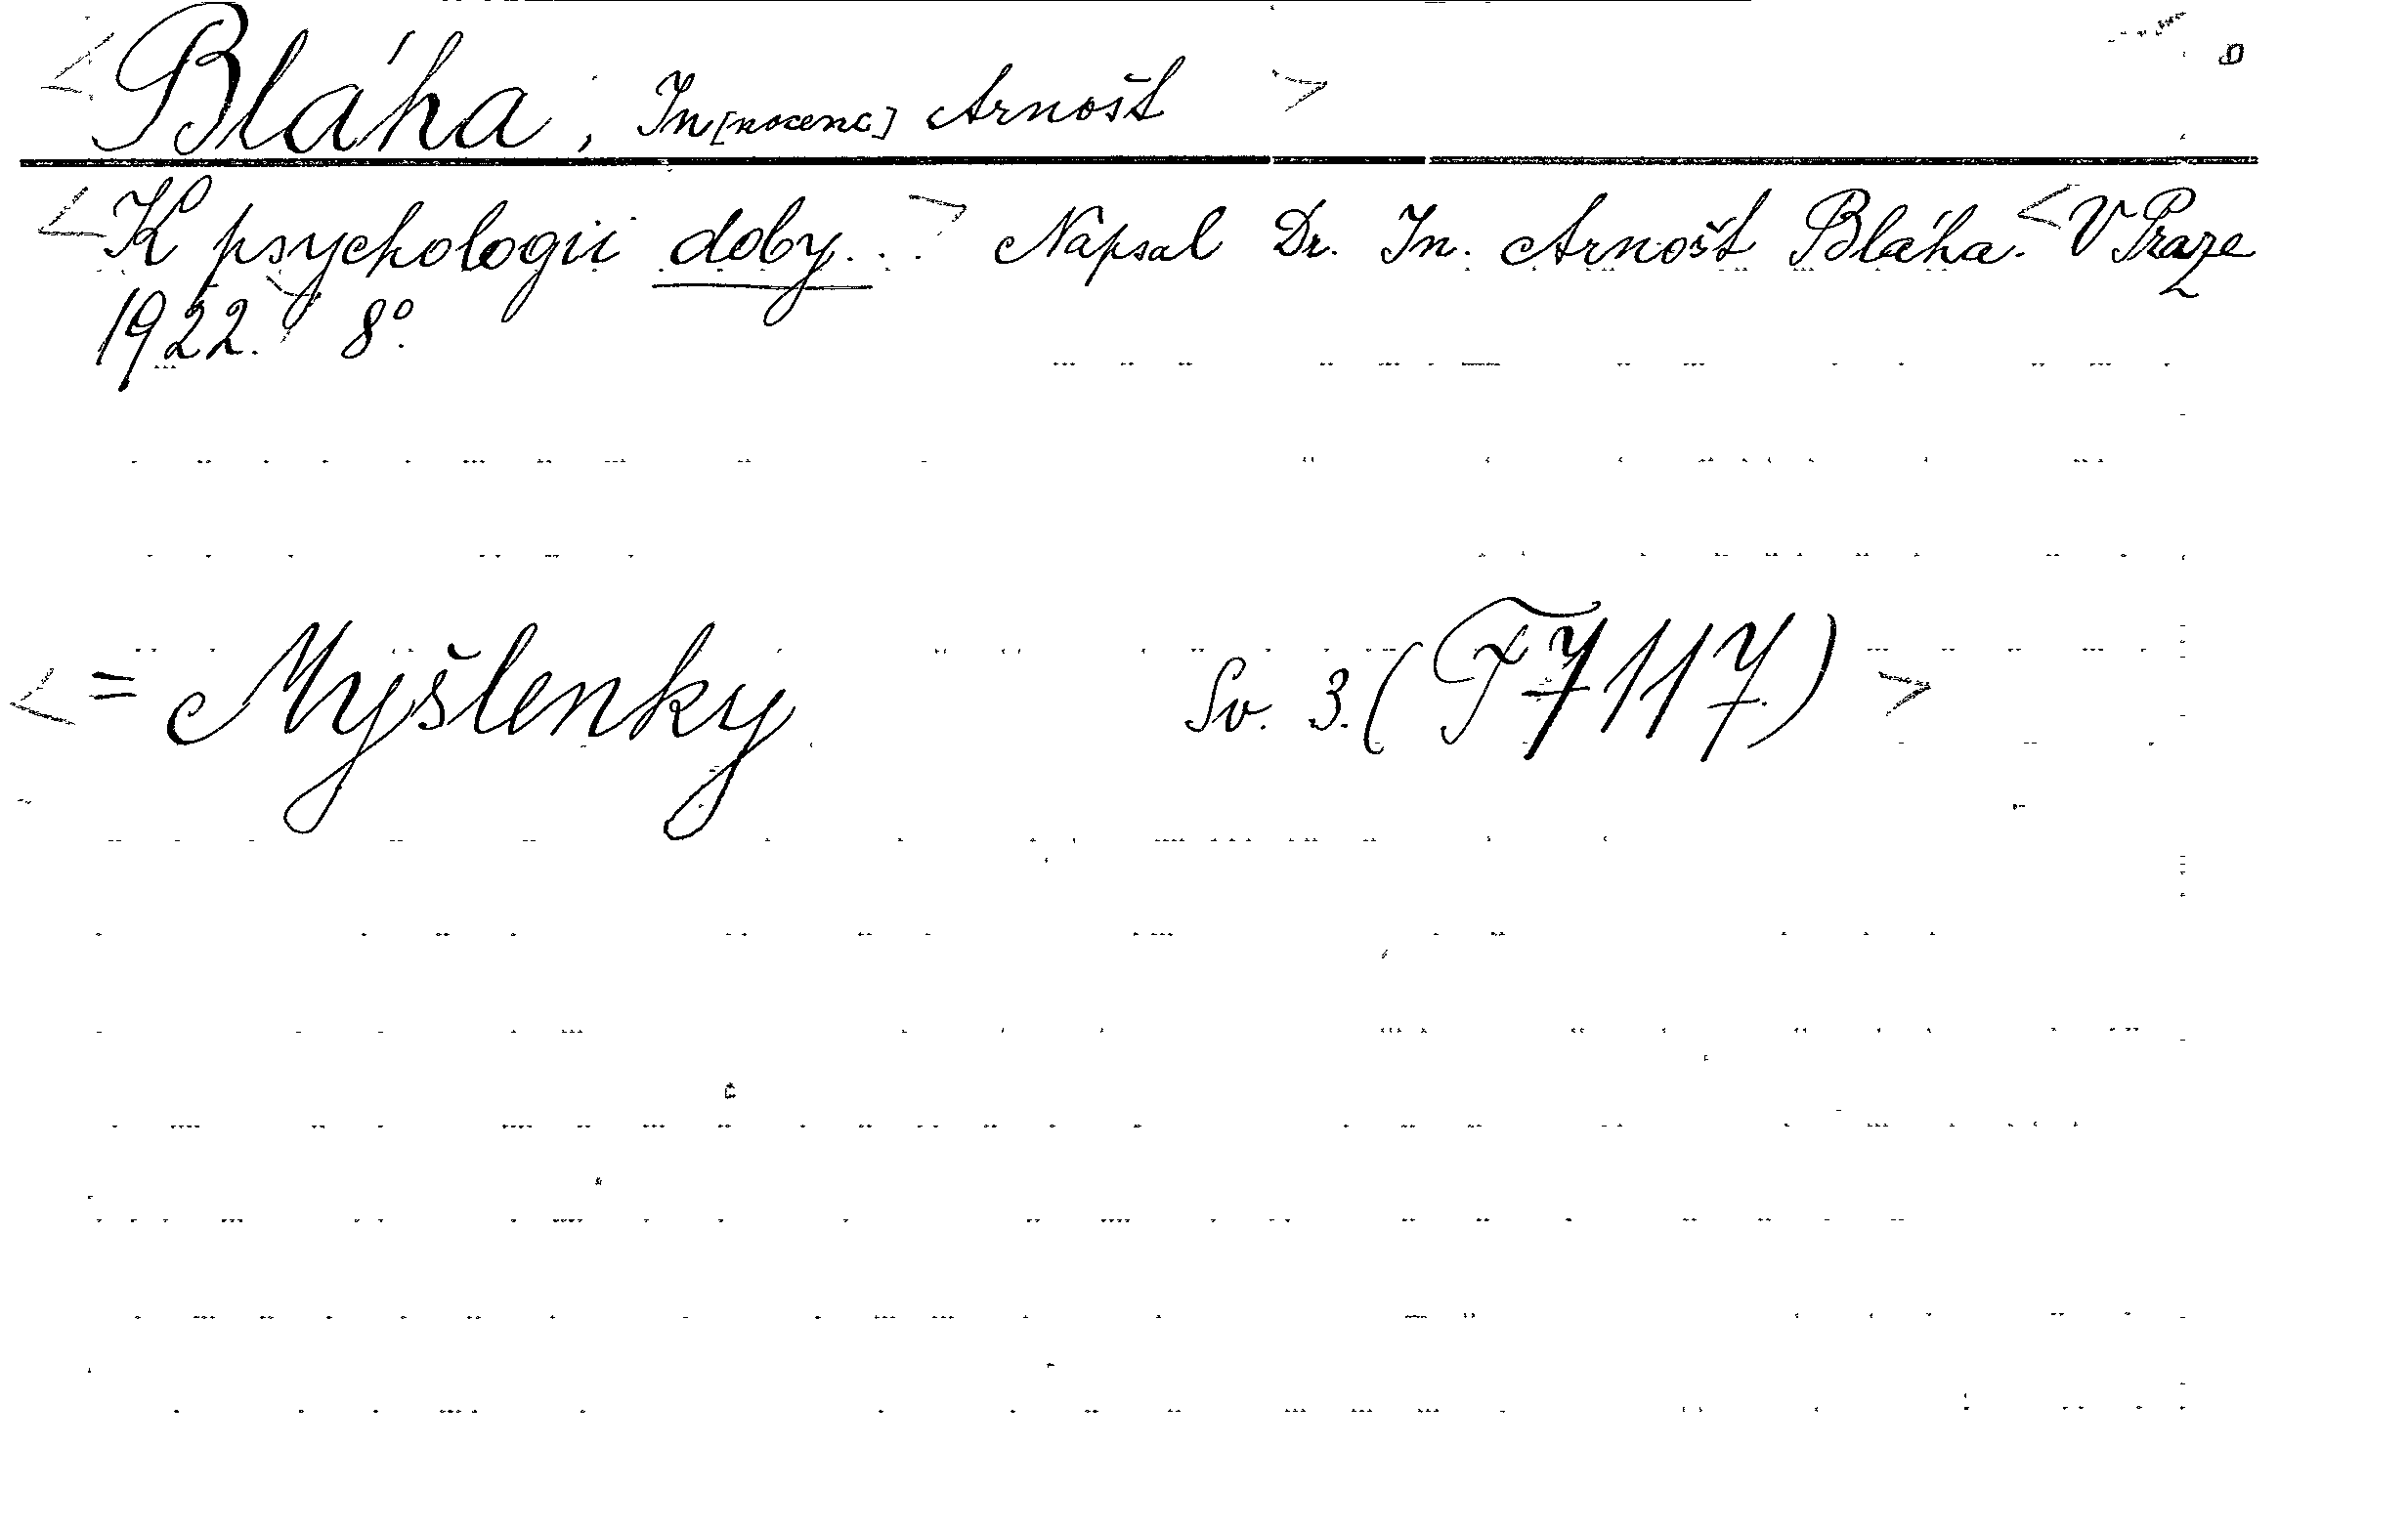 <Bláha, In[nocenc] Arnošt>
<K psychologii doby...> Napsal Dr. In. Arnošt Bláha. <V Praze
1922.> 8°.
<= Myšlenky Sv. 3. (F 7117)>